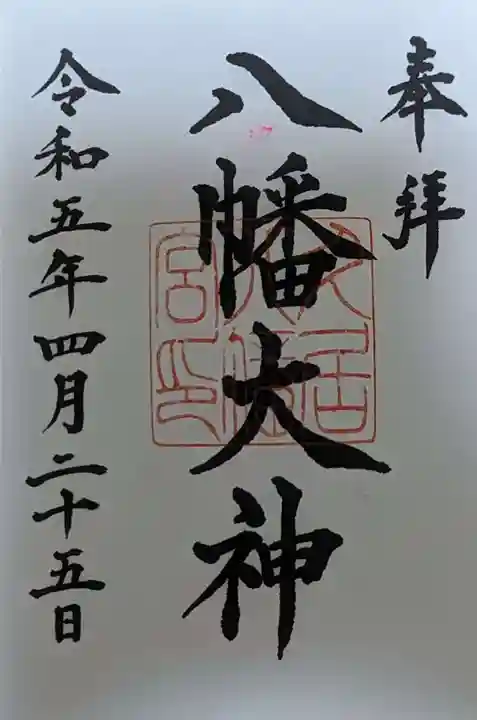 奉拝
八幡大神
令和五年四月二十五日